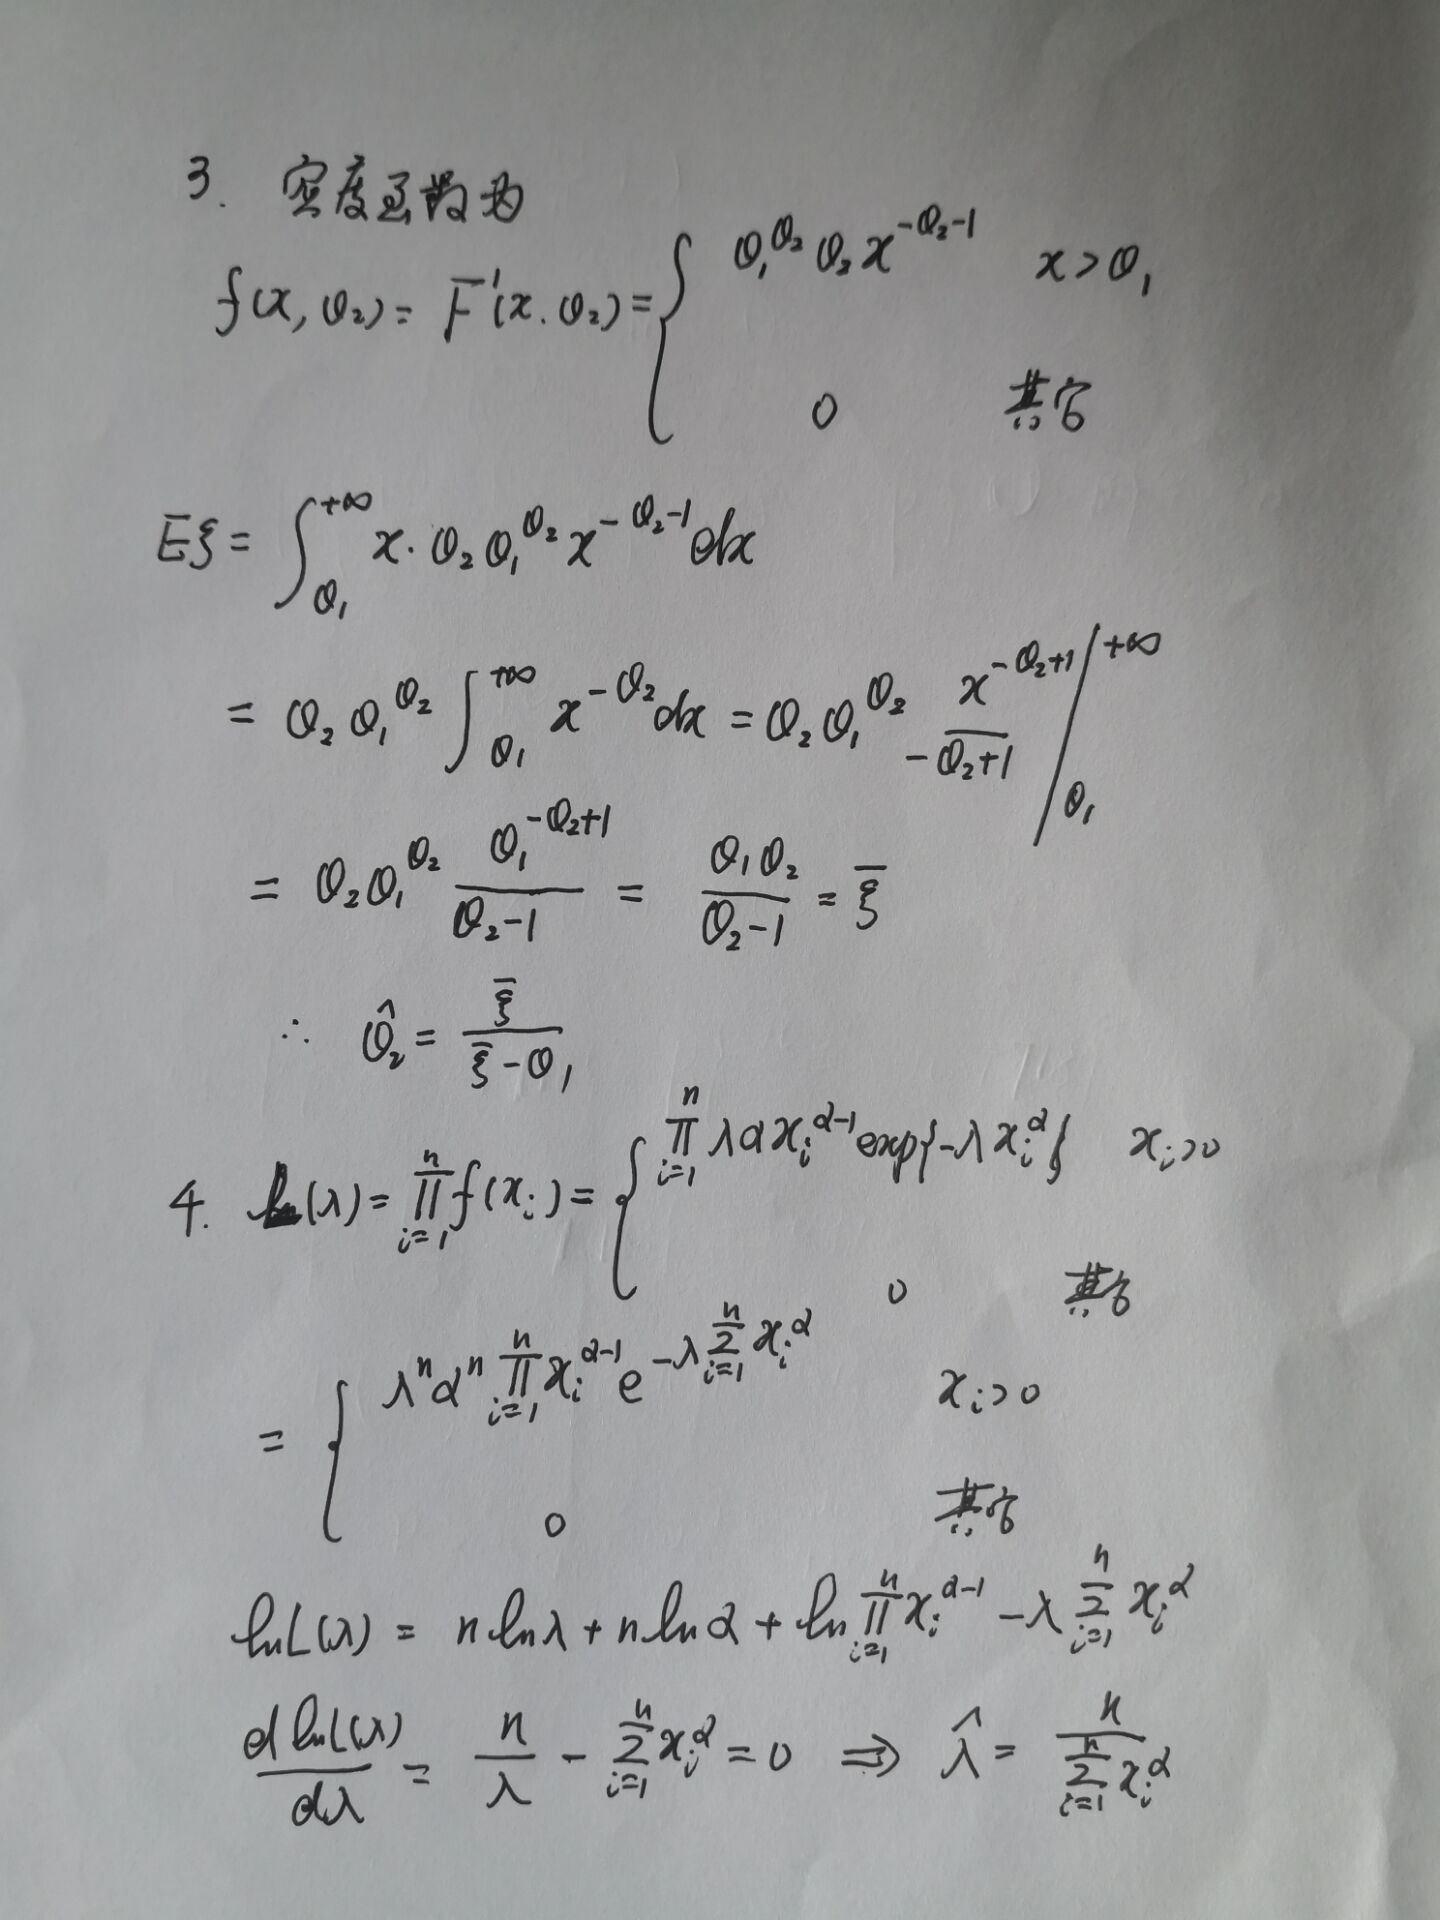 3. 密度函数为
f(x, θ₂) = F'(x. θ₂) = { θ₁^θ₂ θ₂ x^(-θ₂-1)  x > θ₁
0  其它
Eξ = ∫_θ₁^+∞ x · θ₂ θ₁^θ₂ x^(-θ₂-1) dx
= θ₂ θ₁^θ₂ ∫_θ₁^+∞ x^(-θ₂) dx = θ₂ θ₁^θ₂ x^(-θ₂+1)/(-θ₂+1) |_θ₁^+∞
= θ₂ θ₁^θ₂ θ₁^(-θ₂+1)/(θ₂-1) = θ₁θ₂/(θ₂-1) = ξ̄
∴ θ̂₂ = ξ̄/(ξ̄-θ₁)
4. L(λ) = ∏_{i=1}^n f(x_i) = { ∏_{i=1}^n λαx_i^(α-1) exp{-λx_i^α}  x_i>0
0  其它
= { λ^n α^n ∏_{i=1}^n x_i^(α-1) e^(-λ∑_{i=1}^n x_i^α)  x_i>0
0  其它
lnL(λ) = n lnλ + n lnα + ln ∏_{i=1}^n x_i^(α-1) - λ ∑_{i=1}^n x_i^α
d lnL(λ)/dλ = n/λ - ∑_{i=1}^n x_i^α = 0 ⇒ λ̂ = n/∑_{i=1}^n x_i^α